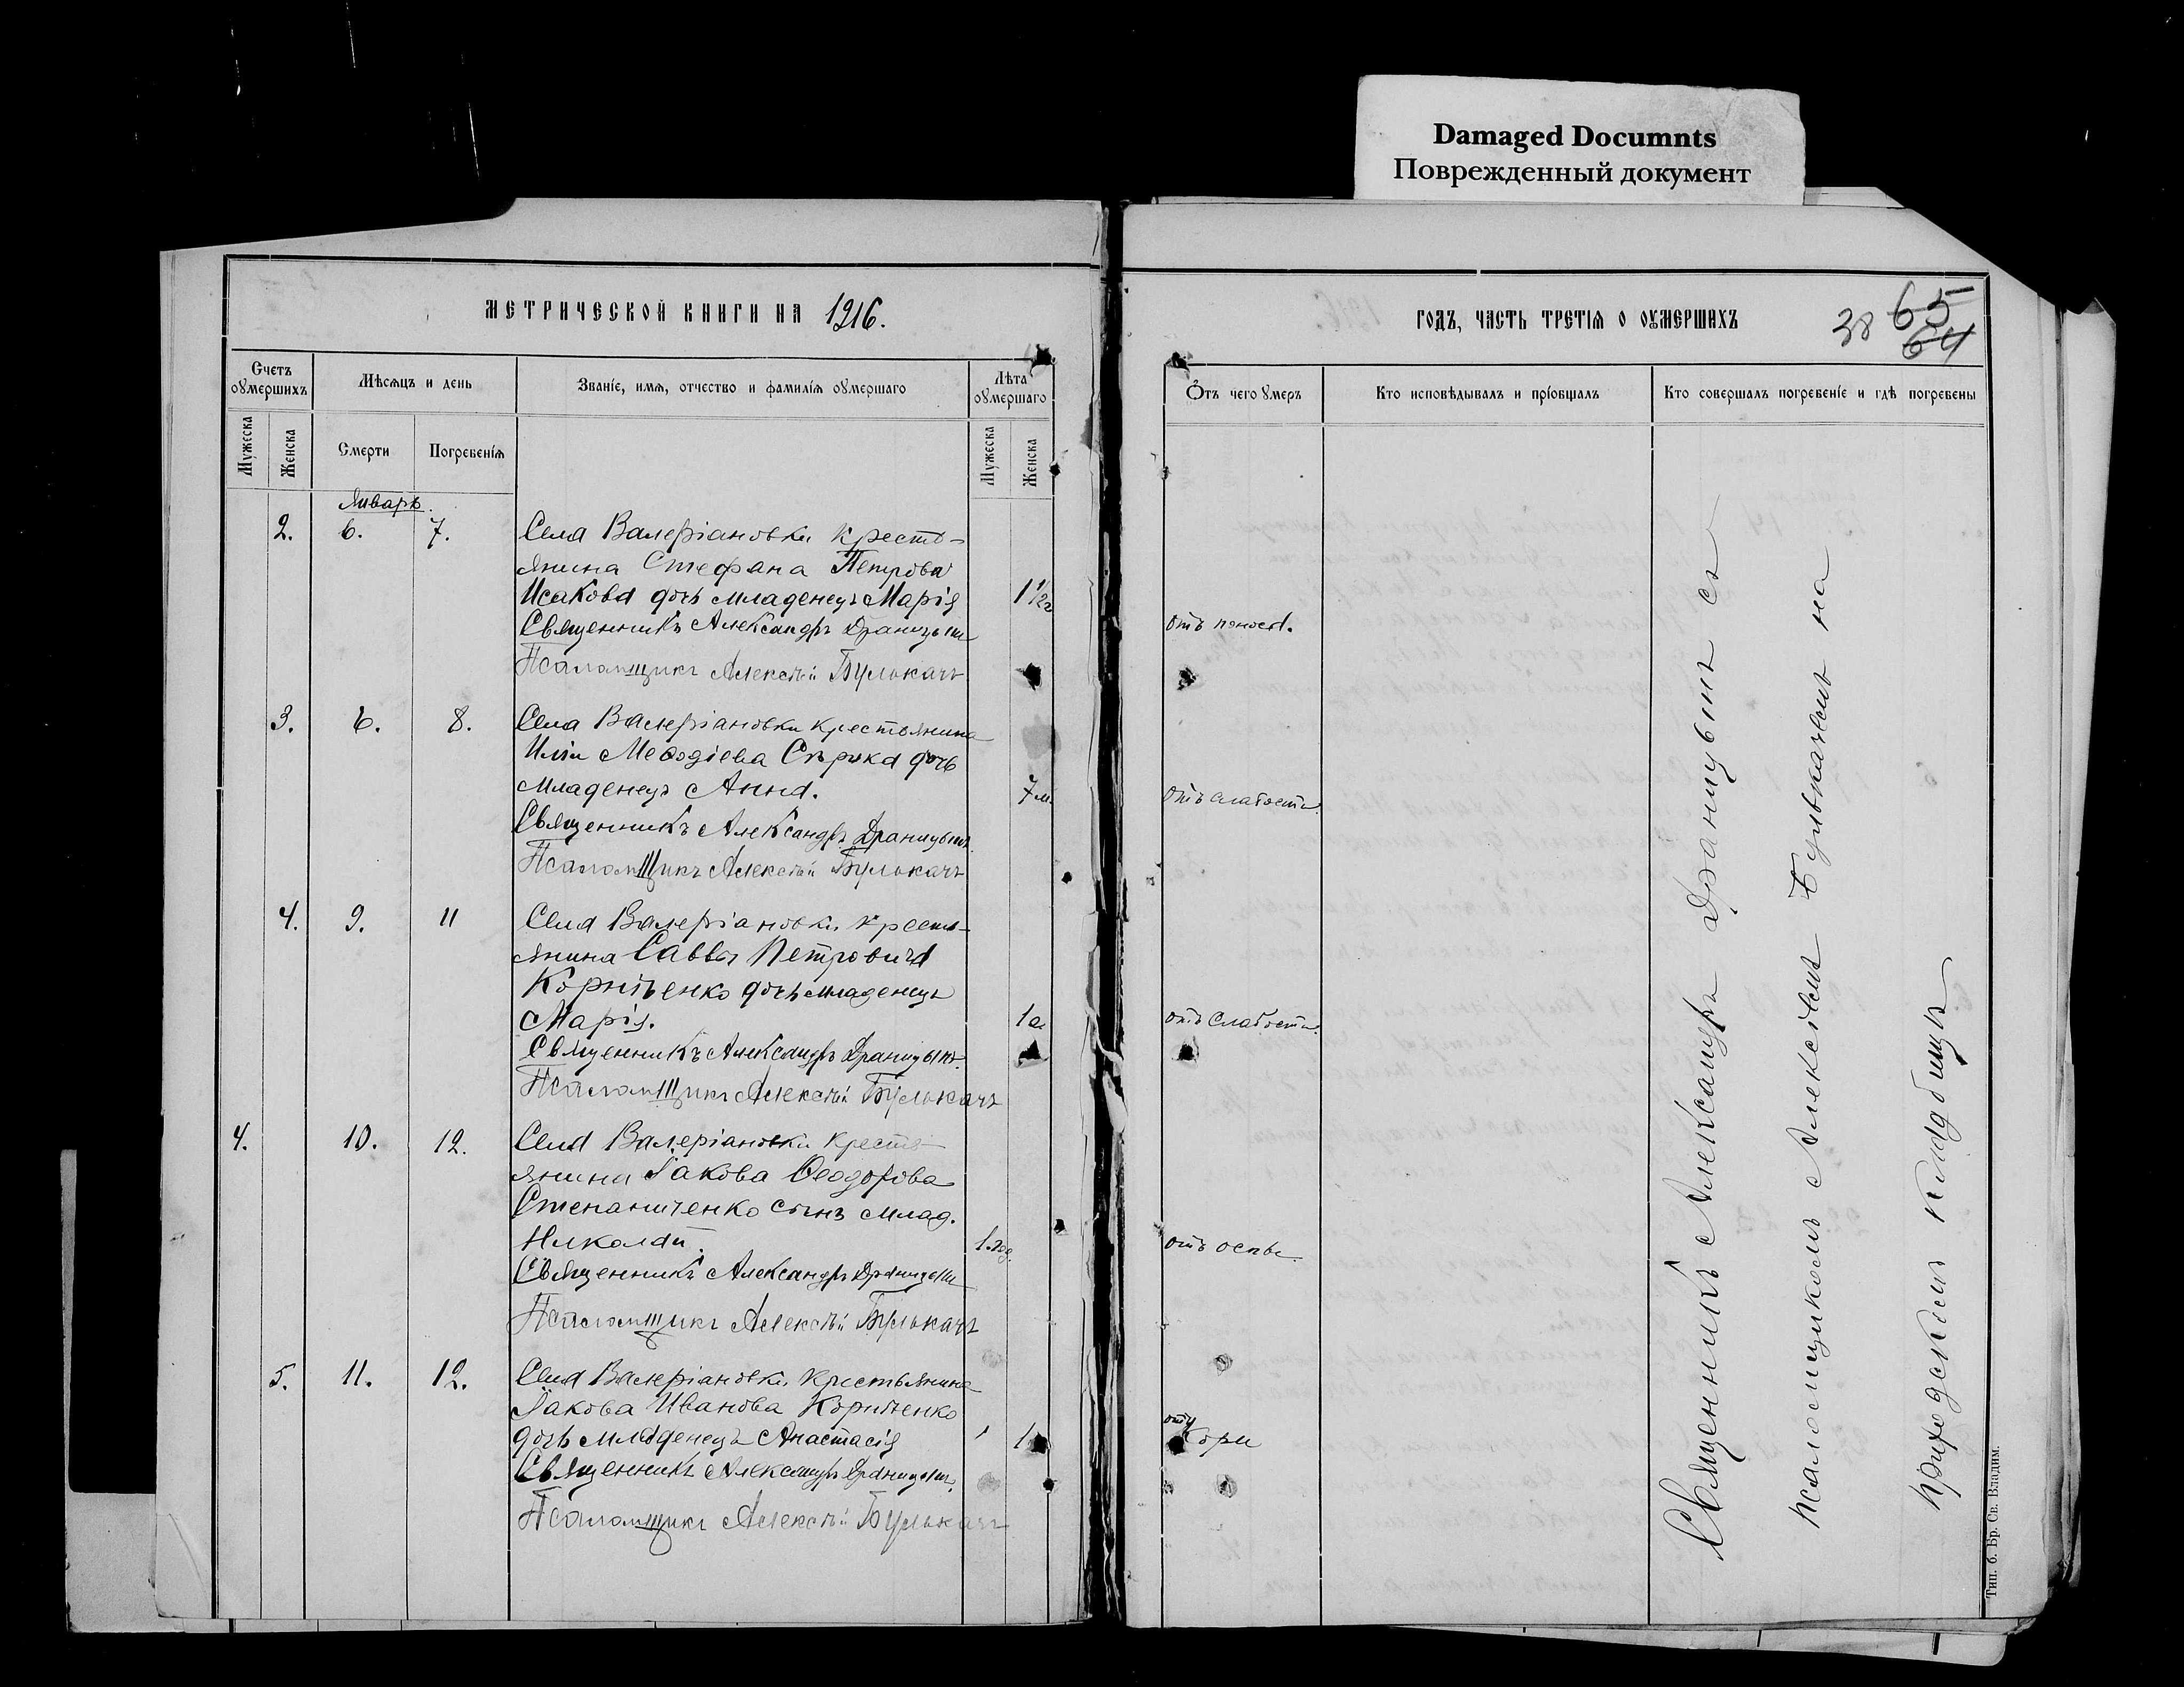 Damaged Documnts
Поврежденный документ
МЕТРИЧЕСКОЙ КНИГИ НА 1916.
Счетъ оумершихъ
Мѣсяцъ и день
Званіе, имя, отчество и фамилія оумершаго
Лѣта оумершаго
Мужеска
Женска
Смерти
Погребенія
Мужеска
Женска
Январь.
2. 6. 7. Села Валеріановки кресть-
янина Стефана Петрова
Исакова дочь младенецъ Марія 1 1/2 г
Священникъ Александръ Драницынъ
Псаломщикъ Алексѣй Булькачъ
3. 6. 8. Села Валеріановки крестьянина
Иліи Меѳодіева Сърика дочь
младенецъ Анна. 7 м.
Священникъ Александръ Драницынъ.
Псаломщикъ Алексѣй Булькачъ
4. 9. 11 Села Валеріановки кресть-
янина Саввы Петровича
Корніенко дочь младенецъ
Марія. 1
Священникъ Александръ Драницынъ.
Псаломщикъ Алексѣй Булькачъ
4. 10. 12. Села Валеріановки кресть-
янина Іакова Ѳеодорова
Степаниченко сынъ млад.
Николай. 1.год.
Священникъ Александръ Драницынъ
Псаломщикъ Алексѣй Булькачъ
5. 11. 12. Села Валеріановки крестьянина
Іакова Иванова Корніенко
дочь младенецъ Анастасія 1
Священникъ Александръ Драницынъ.
Псаломщикъ Алексѣй Булькачъ
ГОДЪ, ЧАСТЬ ТРЕТІЯ О ОУМЕРШИХЪ
38 65
64
Ѿтъ чего оумеръ
Кто исповѣдывалъ и пріобщалъ
Кто совершалъ погребеніе и гдѣ погребены
отъ поноса.
отъ слабости.
отъ слабости.
отъ оспы.
отъ
кори
Священникъ Александръ Драницынъ съ
псаломщикомъ Алексѣемъ Булькачемъ на
приходскомъ кладбищѣ
Тип. б. Бр. Св. Владим.